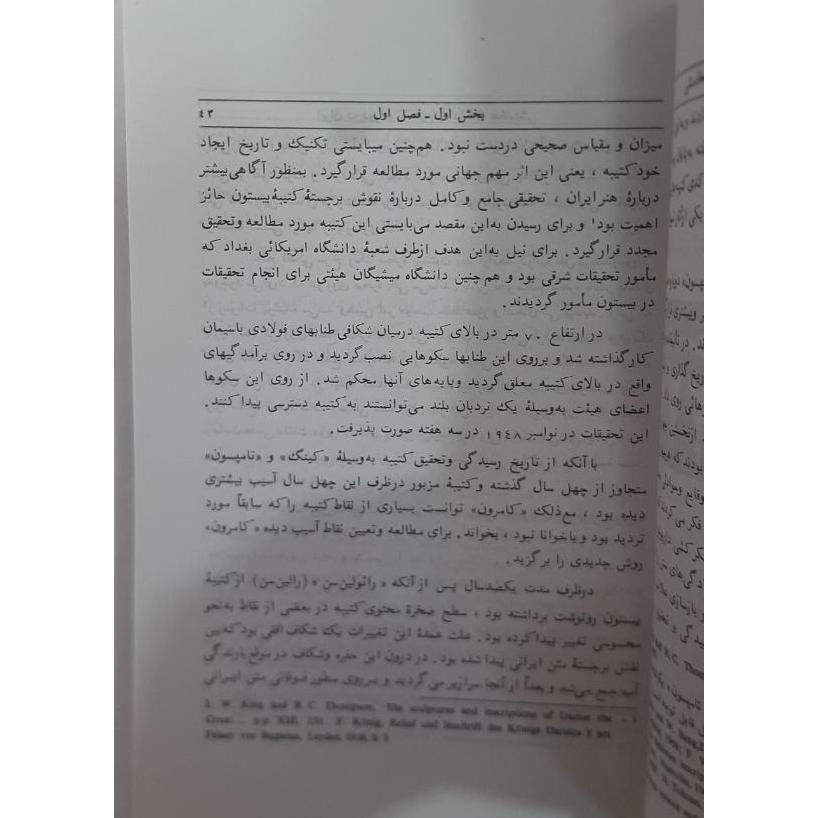 بخش اول ـ فصل اول ۴۳
میزان و مقیاس صحیحی دردست نبود . هم‌چنین میبایستی تکنیک و تاریخ ایجاد
خود کتیبه ، یعنی این اثر مهم جهانی مورد مطالعه قرارگیرد . بمنظور آگاهی بیشتر
دربارهٔ هنر ایران ، تحقیقی جامع و کامل دربارهٔ نقوش برجستهٔ کتیبهٔ بیستون حائز
اهمیت بود¹ و برای رسیدن به‌این مقصد می‌بایستی این کتیبه مورد مطالعه وتحقیق
مجدد قرارگیرد . برای نیل به‌این هدف ازطرف شعبهٔ دانشگاه امریکائی بغداد که
مأمور تحقیقات شرقی بود و هم‌چنین دانشگاه میشیگان هیئتی برای انجام تحقیقات
در بیستون مأمور گردیدند .
در ارتفاع ۷۰ متر در بالای کتیبه درمیان شکافی طنابهای فولادی باسیمان
کار گذاشته شد و برروی این طنابها سکوهایی نصب گردید و در روی برآمدگیهای
واقع در بالای کتیبه معلق گردید وپایه‌های آنها محکم شد . از روی این سکوها
اعضای هیئت به‌وسیلهٔ یک نردبان بلند می‌توانستند به‌کتیبه دسترسی پیدا کنند .
این تحقیقات در نوامبر ۱۹۴۸ درسه هفته صورت پذیرفت .
با آنکه از تاریخ رسیدگی وتحقیق کتیبه به‌وسیلهٔ «کینگ» و «تامپسون»
متجاوز از چهل سال گذشته و کتیبهٔ مزبور درظرف این چهل سال آسیب بیشتری
دیده بود ، مع‌ذلک «کامرون» توانست بسیاری از نقاط کتیبه را که سابقاً مورد
تردید بود و یاخوانا نبود ، بخواند . برای مطالعه وتعیین نقاط آسیب دیده «کامرون»
روش جدیدی را برگزید .
درظرف مدت یکصدسال پس از آنکه « رائولین‌سن » (رالین‌سن) از کتیبهٔ
بیستون رونوشت برداشته بود ، سطح صخرهٔ محتوی کتیبه در بعضی از نقاط به‌نحو
محسوسی تغییر پیدا کرده بود . علت عمدهٔ این تغییرات یک شکاف افقی بود که بین
نقش برجستهٔ متن ایرانی پیدا شده بود . در درون این حفره وشکاف در موقع بارندگی
آب جمع می‌شد و بعداً از آنجا سرازیر می‌گردید و برروی سطور فوقانی متن ایرانی
L. W. King and R. C. Thompson, The sculptures and inscriptions of Darius the - ۱
Great... pp. XIII, F. König, Relief und Inschrift des Königs Dareios I
Felsen von Bagistan, Leyden, 1938,